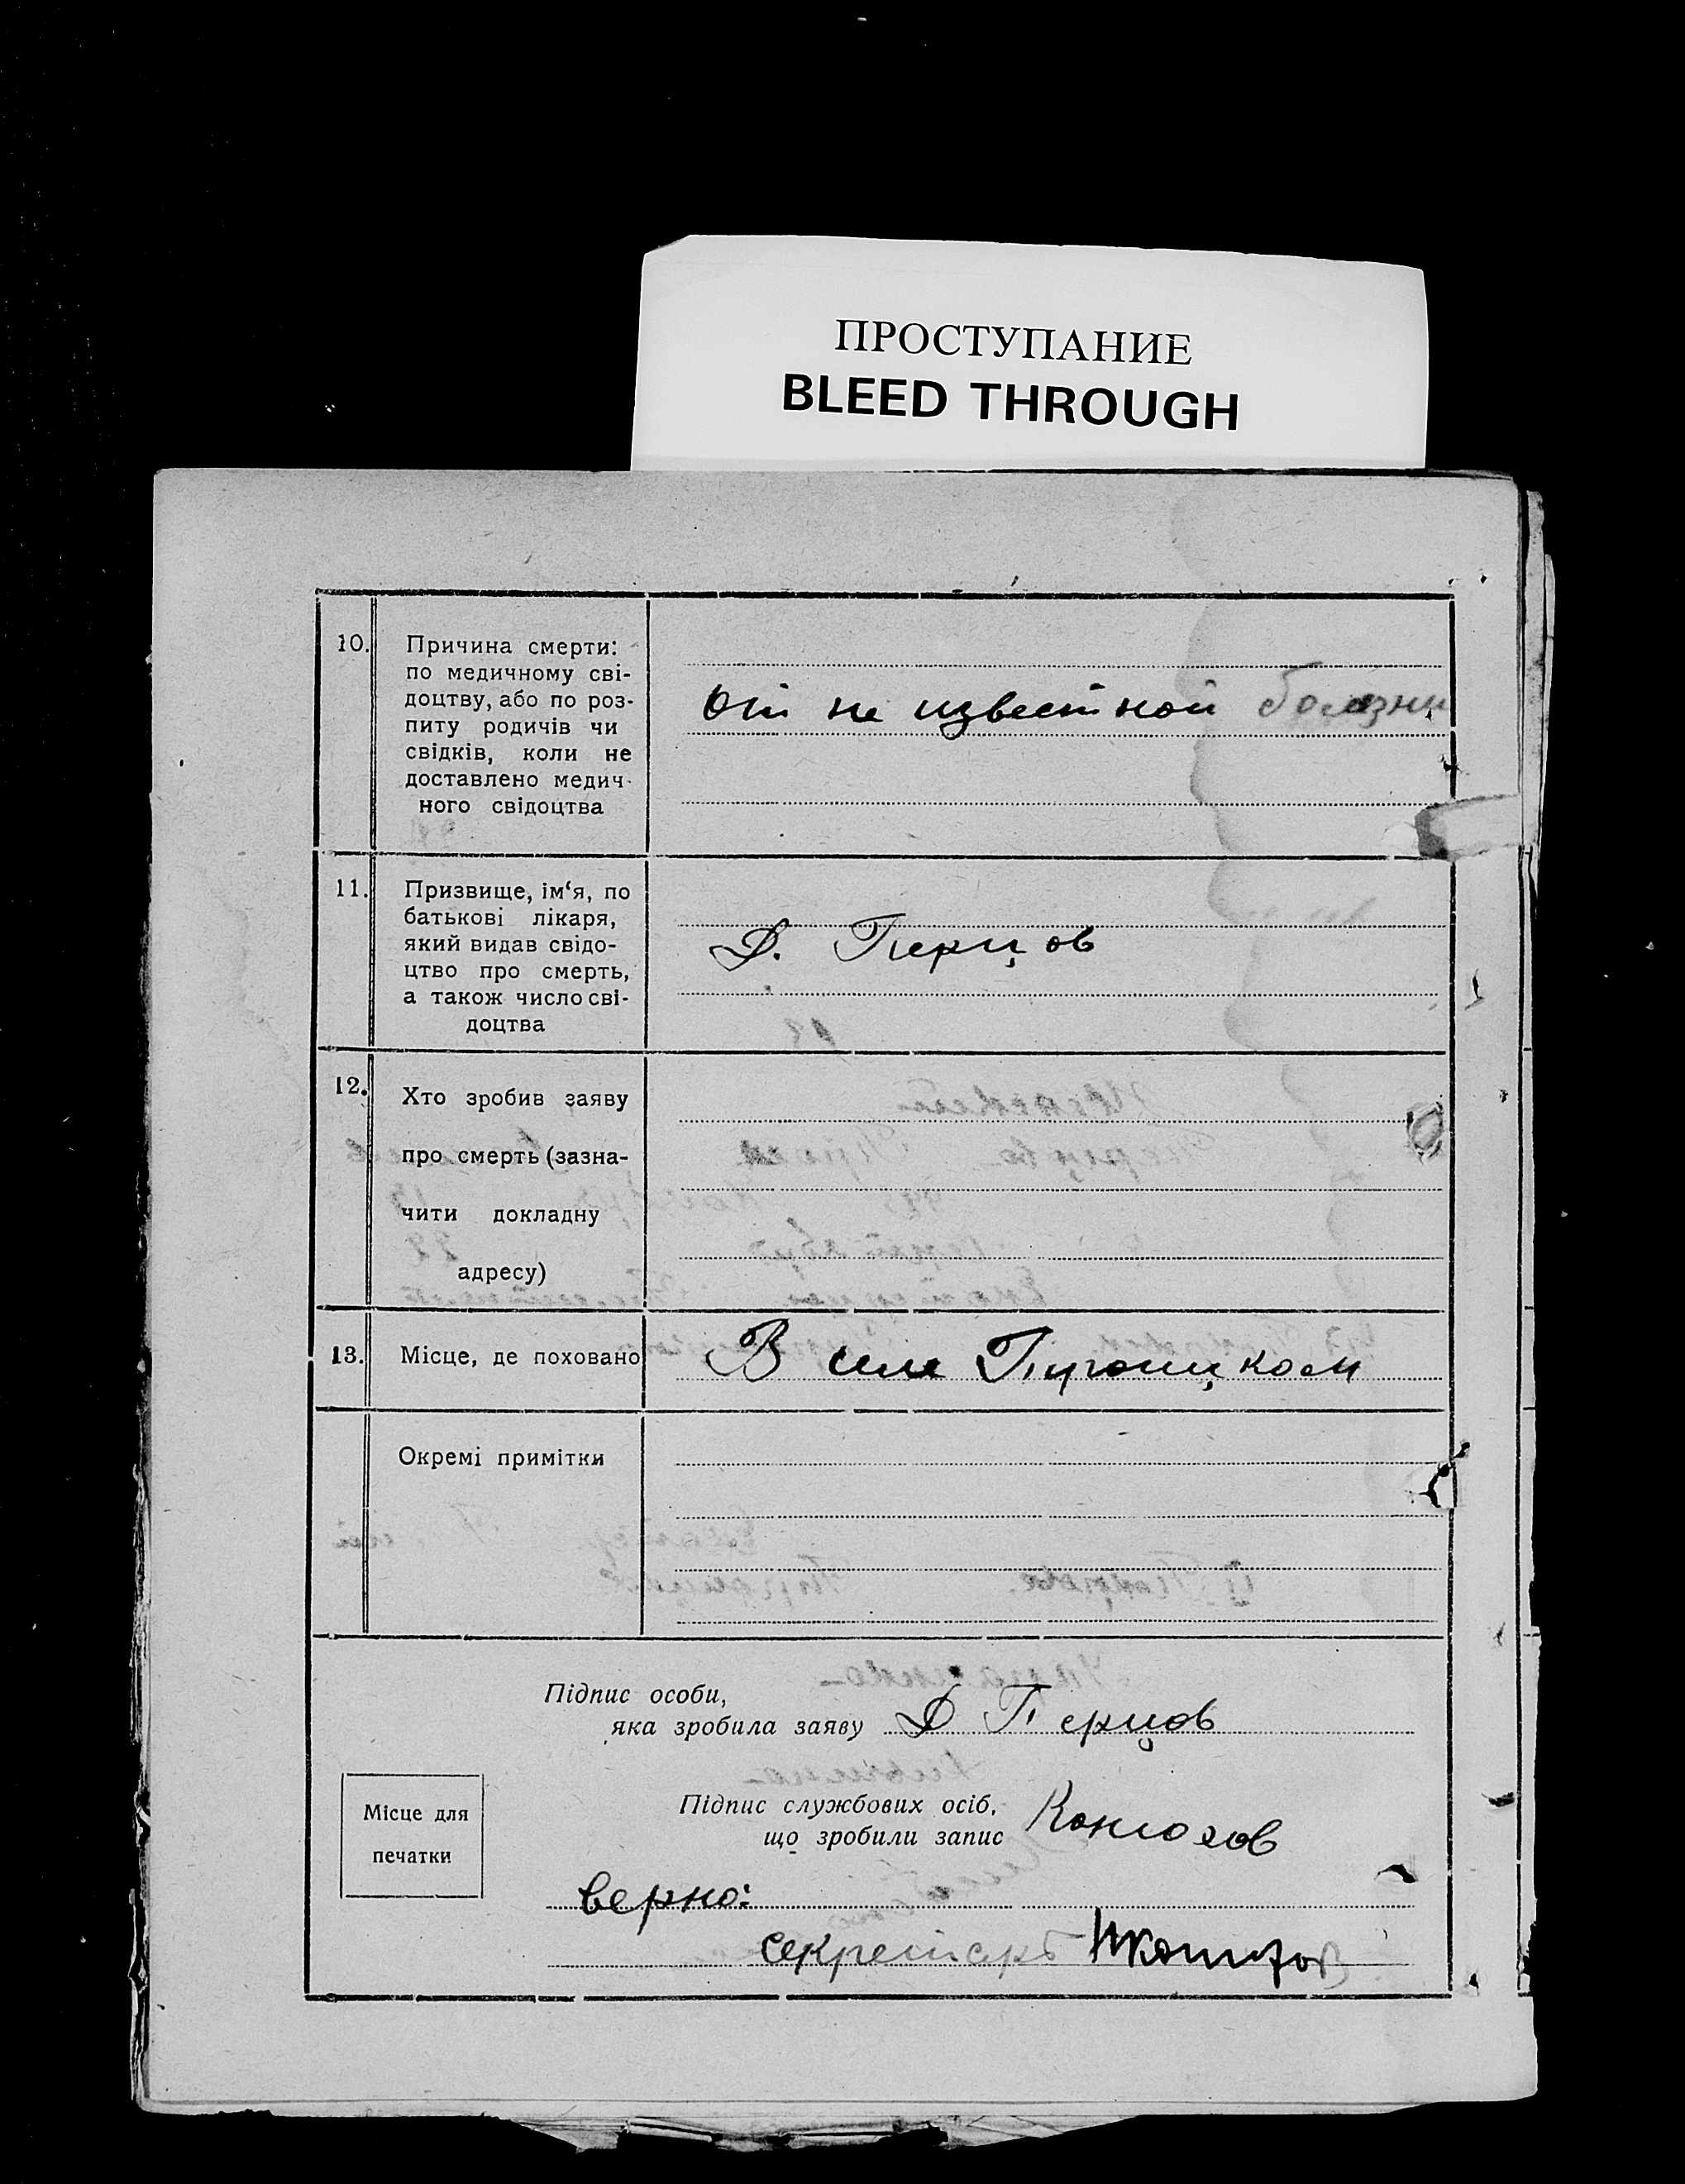 ПРОСТУПАНИЕ
BLEED THROUGH
10.
Причина смерти:
по медичному сві-
доцтву, або по роз-
питу родичів чи
свідків, коли не
доставлено медич-
ного свідоцтва
От не известной болезни
11.
Призвище, ім‘я, по
батькові лікаря,
який видав свідо-
цтво про смерть,
а також число сві-
доцтва
Д. Перцов
12.
Хто зробив заяву
про смерть (зазна-
чити докладну
адресу)
13.
Місце, де поховано
В селе
Окремі примітки
Підпис особи,
яка зробила заяву Д Перцов
Підпис службових осіб,
що зробили запис
Місце для
печатки
верно:
секретарь